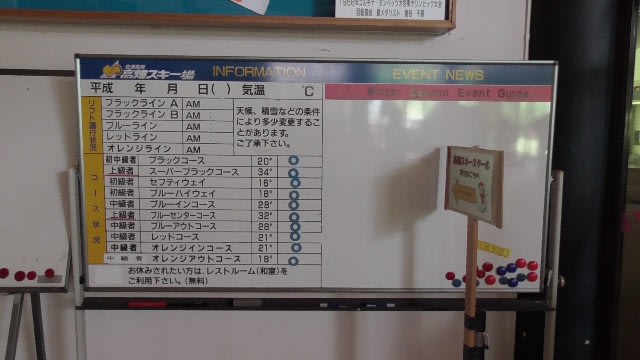 高畑スキー場 INFORMATION
平成 年 月 日( ) 気温 ℃
リフト運行状況
ブラックライン A AM
ブラックライン B AM
ブルーライン AM
レッドライン AM
オレンジライン AM
天候、積雪などの条件
により多少変更するこ
とがあります。
ご了承下さい。
コース状況
初中級者 ブラックコース 20°
上級者 スーパーブラックコース 34°
初級者 セフティウェイ 16°
初級者 ブルーハイウェイ 18°
中級者 ブルーインコース 29°
上級者 ブルーセンターコース 32°
中級者 ブルーアウトコース 28°
中級者 レッドコース 21°
中級者 オレンジインコース 21°
中級者 オレンジアウトコース 18°
お休みされたい方は、レストルーム(和室)を
ご利用下さい。(無料)
EVENT NEWS
Winter Season Event Guide